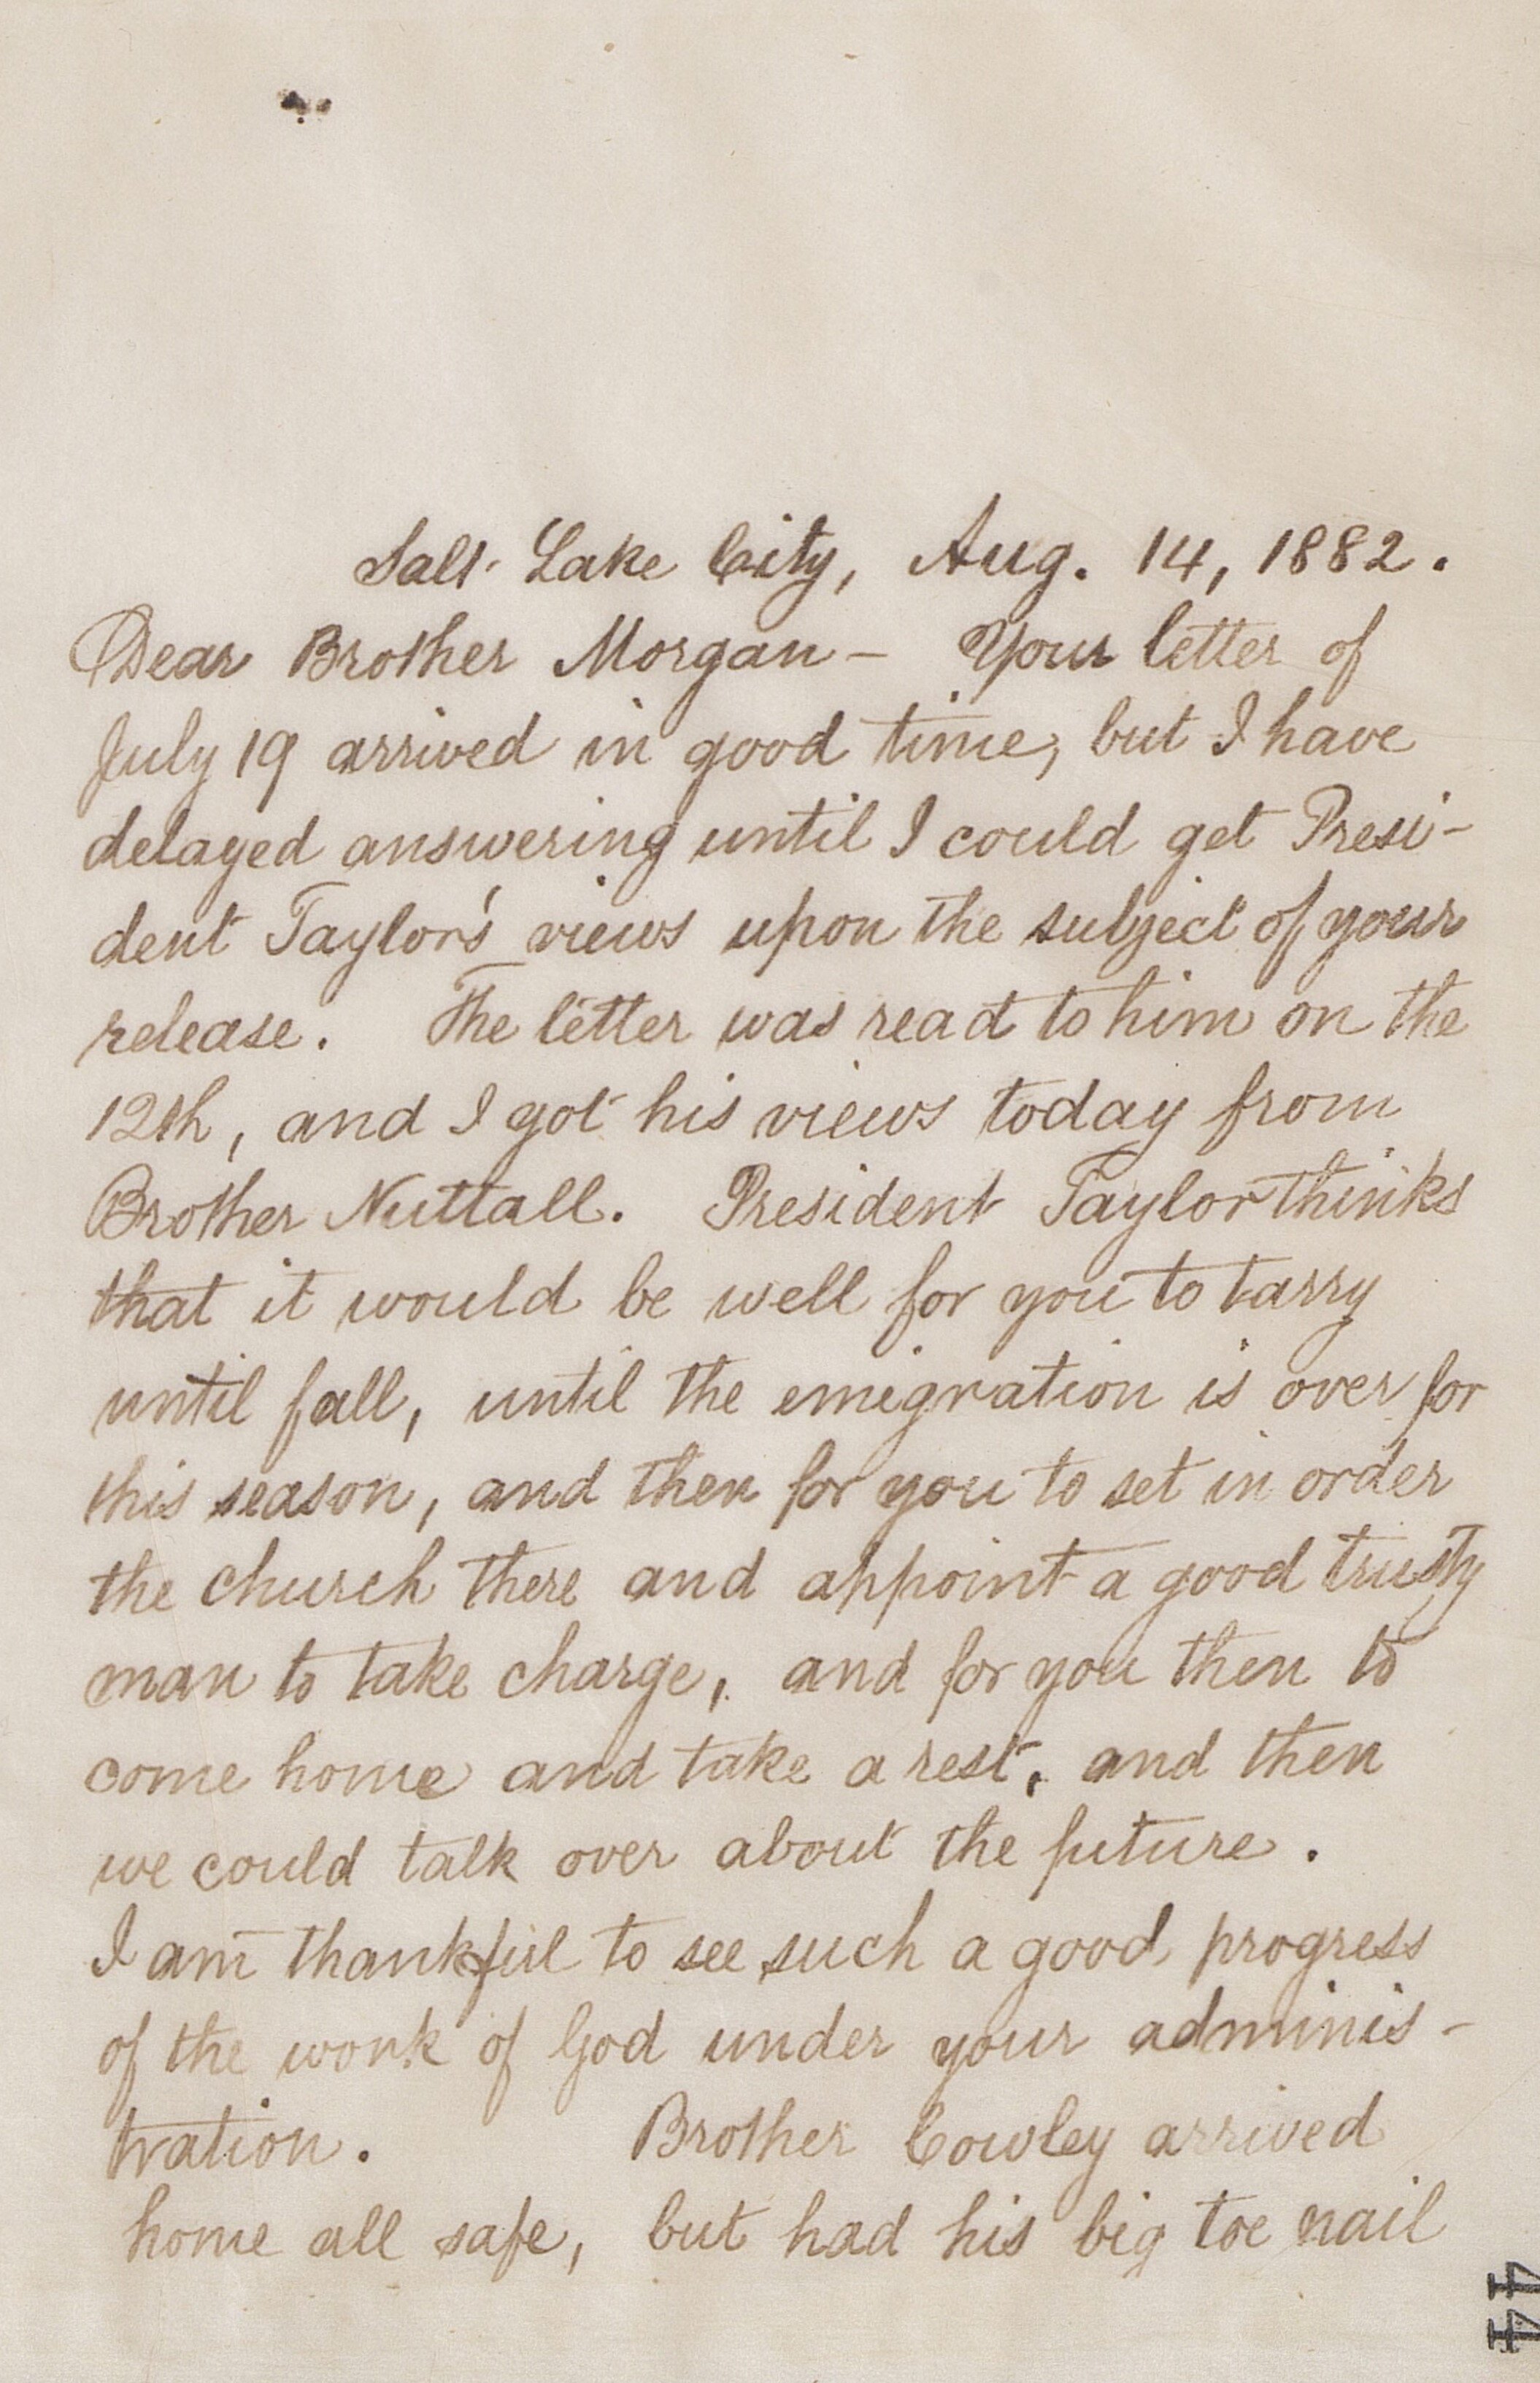 Salt Lake City, Aug. 14, 1882.
Dear Brother Morgan – Your letter of
July 19 arrived in good time, but I have
delayed answering until I could get Presi-
dent Taylor's views upon the subject of your
release. The letter was read to him on the
12th, and I got his views today from
Brother Nuttall. President Taylor thinks
that it would be well for you to tarry
until fall, until the emigration is over for
this season, and then for you to set in order
the church there and appoint a good trusty
man to take charge, and for you then to
come home and take a rest, and then
we could talk over about the future.
I am thankful to see such a good progress
of the work of God under your adminis-
tration. Brother Cowley arrived
home all safe, but had his big toe nail
44